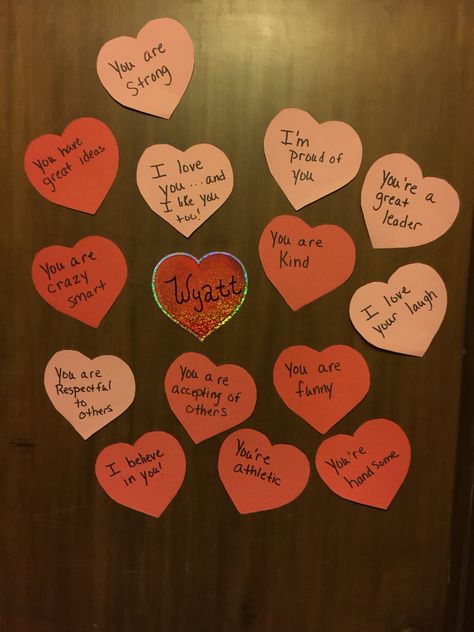 You are
Strong
You have
great ideas
I love
you...and
I like you
too!
I'm
proud of
you
You're a
great
leader
You are
crazy
smart
Wyatt
You are
Kind
I love
your laugh
You are
Respectful
to
others
You are
accepting of
others
You are
funny
I believe
in you!
You're
athletic
You're
handsome